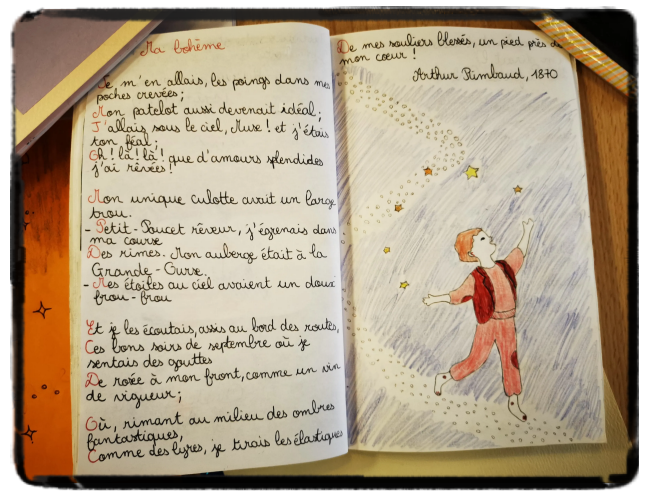 Ma bohème
Je m'en allais, les poings dans mes
poches crevées ;
Mon paletot aussi devenait idéal ;
J'allais sous le ciel, Muse ! et j'étais
ton féal ;
Oh ! là ! là ! que d'amours splendides
j'ai rêvées !
Mon unique culotte avait un large
trou.
- Petit-Poucet rêveur, j'égrenais dans
ma course
Des rimes. Mon auberge était à la
Grande-Ourse.
- Mes étoiles au ciel avaient un doux
frou-frou
Et je les écoutais, assis au bord des routes,
Ces bons soirs de septembre où je
sentais des gouttes
De rosée à mon front, comme un vin
de vigueur ;
Où, rimant au milieu des ombres
fantastiques,
Comme des lyres, je tirais les élastiques
De mes souliers blessés, un pied près de
mon cœur !
Arthur Rimbaud, 1870